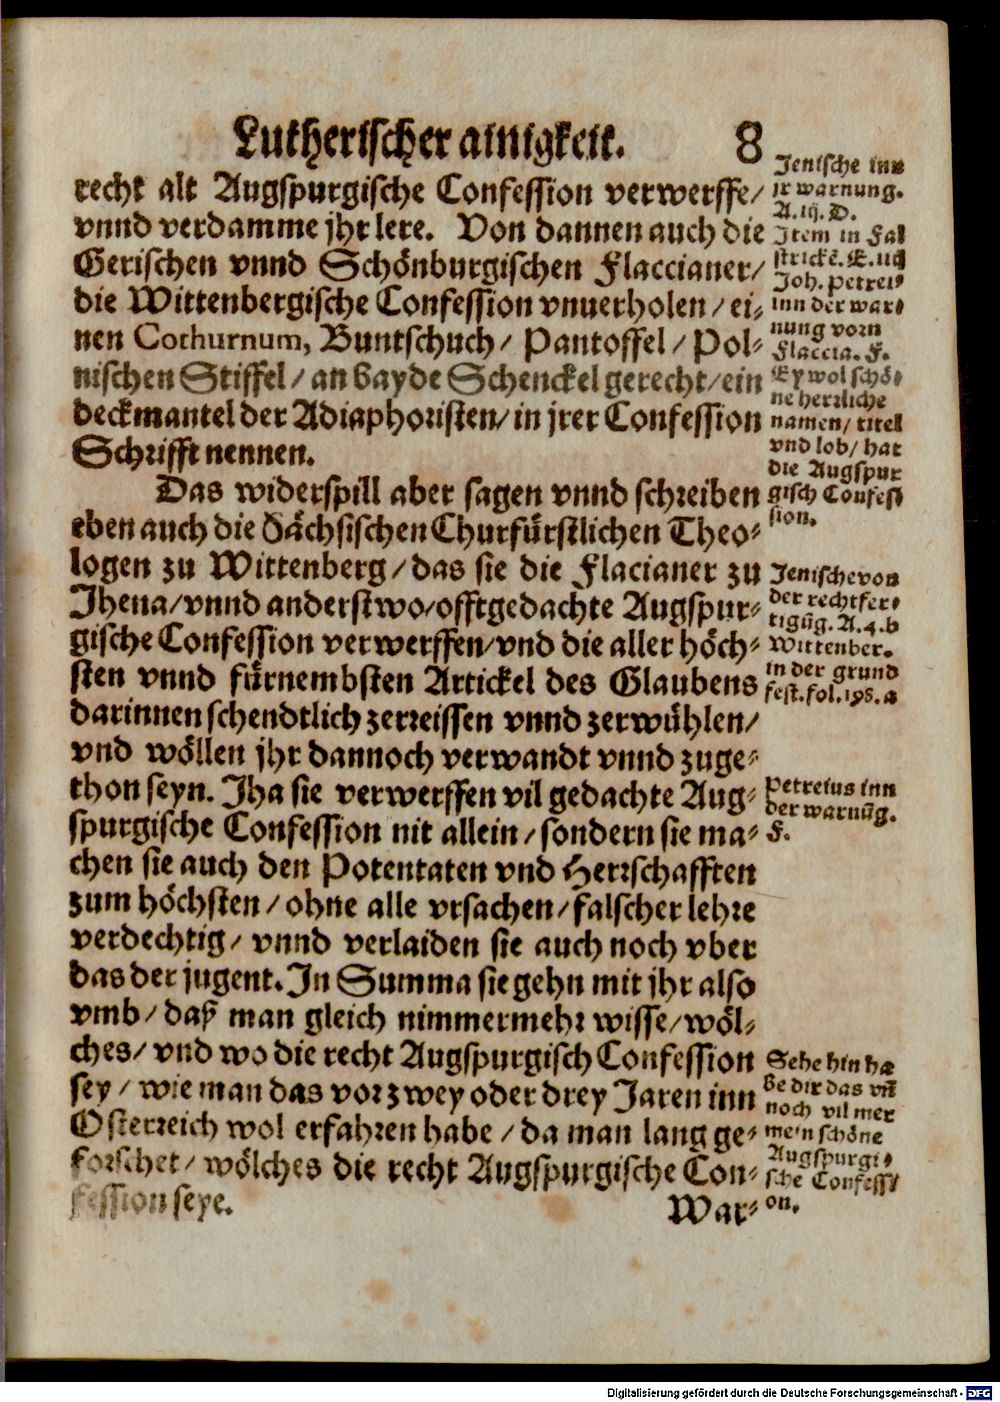 Lutherischer ainigkeit. 8
recht alt Augspurgische Confession verwerffe/
vnnd verdamme jhr lere. Von dannen auch die
Gerischen vnnd Schönburgischen Flaccianer/
die Wittenbergische Confession vnuerholen/ ei⸗
nen Cothurnum, Buntschuch/ Pantoffel/ Pol⸗
nischen Stiffel/ an bayde Schenckel gerecht/ ein
deckmantel der Adiaphoristen/ in jrer Confession
Schrifft nennen.
Das widerspill aber sagen vnnd schreiben
eben auch die Sächsischen Churfürstlichen Theo⸗
logen zu Wittenberg/ das sie die Flacianer zu
Jhena/ vnnd anderstwo/ offtgedachte Augspur⸗
gische Confession verwerffen/ vnd die aller höch⸗
sten vnnd fürnembsten Artickel des Glaubens
darinnen schendtlich zerreissen vnnd zerwühlen/
vnd wöllen jhr dannoch verwandt vnnd zuge⸗
thon seyn. Jha sie verwerffen vil gedachte Aug⸗
spurgische Confession nit allein/ sondern sie ma⸗
chen sie auch den Potentaten vnd Herrschafften
zum höchsten/ ohne alle vrsachen/ falscher lehre
verdechtig/ vnnd verlaiden sie auch noch vber
das der jugent. In Summa sie gehn mit jhr also
vmb/ daß man gleich nimmermehr wisse/ wöl⸗
ches/ vnd wo die recht Augspurgisch Confession
sey/ wie man das vor zwey oder drey Jaren inn
Osterreich wol erfahren habe/ da man lang ge⸗
forschet/ wölches die recht Augspurgische Con⸗
fession seye.
War⸗
Jenische inn
jr warnung.
A. iij. D.
Item in Fal
stricke. E. iiij
Joh. Petrei⸗
inn der war⸗
nung vorn
Flaccia. F.
Ey wol schö⸗
ne herrliche
namen/ titel
vnd lob/ hat
die Augspur
gisch Confes
sion.
Jenische von
der rechtfer⸗
tigūg. A. 4. b
Wittenber.
in der grund
fest. fol. 198. a
Petreius inn
der warnūg.
F.
Sehe hin ha
be dir das vñ
noch vil mer
mein schöne
Augspurgi⸗
sche Confess/
on.
Digitalisierung gefördert durch die Deutsche Forschungsgemeinschaft - DFG